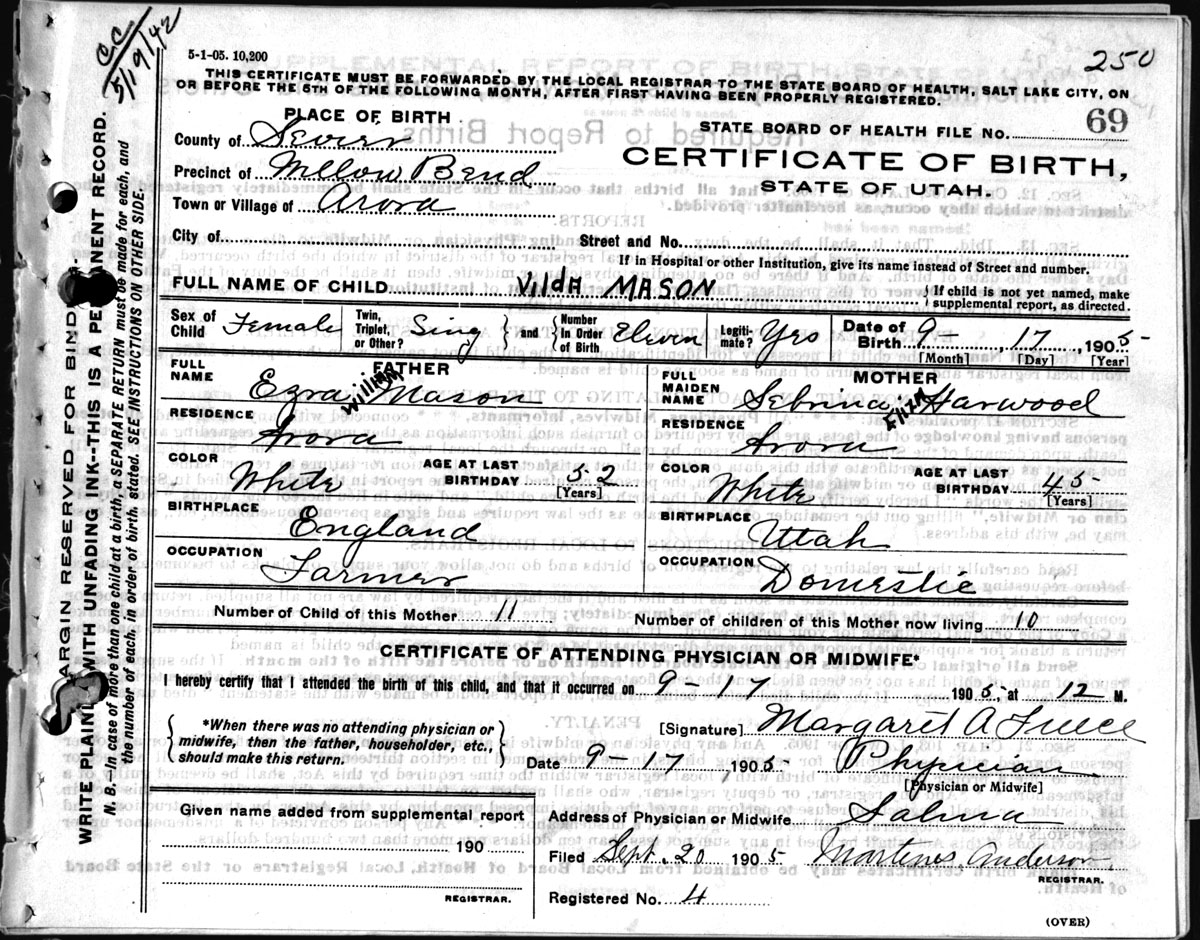 C.C.
5/19/42
250
5-1-05. 10,200
THIS CERTIFICATE MUST BE FORWARDED BY THE LOCAL REGISTRAR TO THE STATE BOARD OF HEALTH, SALT LAKE CITY, ON
OR BEFORE THE 5TH OF THE FOLLOWING MONTH, AFTER FIRST HAVING BEEN PROPERLY REGISTERED.
PLACE OF BIRTH
STATE BOARD OF HEALTH FILE NO. 69
County of Sevier
CERTIFICATE OF BIRTH,
Precinct of Willow Bend
STATE OF UTAH.
Town or Village of Arora
City of Street and No.
If in Hospital or other Institution, give its name instead of Street and number.
FULL NAME OF CHILD VildA MASON { If child is not yet named, make supplemental report, as directed.
Sex of Child Female Twin, Triplet, or Other? Sing } and { Number in Order of Birth Eleven Legiti-mate? Yes Date of Birth 9- 17 1905
[Month] [Day] [Year]
FATHER
FULL NAME Ezra William Mason
RESIDENCE Arora
COLOR White AGE AT LAST BIRTHDAY 52 [Years]
BIRTHPLACE England
OCCUPATION Farmer
MOTHER
FULL MAIDEN NAME Sebrina Eliza Harwood
RESIDENCE Arora
COLOR White AGE AT LAST BIRTHDAY 45 [Years]
BIRTHPLACE Utah
OCCUPATION Domestic
Number of Child of this Mother 11 Number of children of this Mother now living 10
CERTIFICATE OF ATTENDING PHYSICIAN OR MIDWIFE*
I hereby certify that I attended the birth of this child, and that it occurred on 9-17 1905, at 12 M.
{ *When there was no attending physician or midwife, then the father, householder, etc., should make this return. }
[Signature] Margaret A
Date 9-17 1905 Physician
[Physician or Midwife]
Given name added from supplemental report
190
REGISTRAR.
Address of Physician or Midwife Salina
Filed Sept. 20 1905 Martines Anderson
REGISTRAR.
Registered No. 4
(OVER)
MARGIN RESERVED FOR BINDING
WRITE PLAINLY WITH UNFADING INK--THIS IS A PERMANENT RECORD.
N. B.--In case of more than one child at a birth, a SEPARATE RETURN must be made for each, and
the number of each, in order of birth, stated. SEE INSTRUCTIONS ON OTHER SIDE.